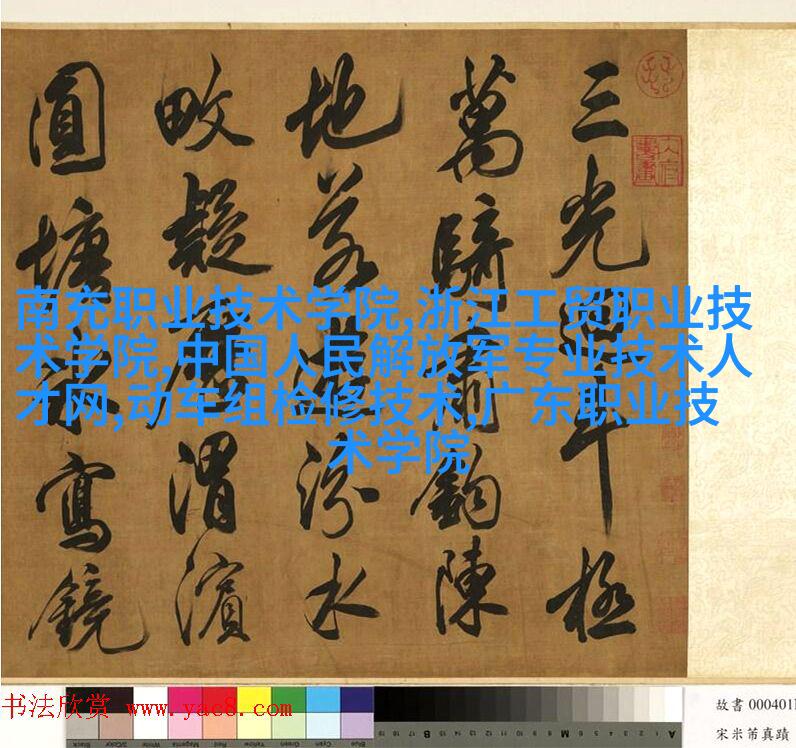 三光斗極
萬騎鈎陳
地若汾水
畋疑渭濱
圓塘寫鏡
南充职业技术学院,浙江工贸职业技
术学院,中国人民解放军专业技术人
才网,动车组检修技术,广东职业技
术学院
书法欣赏 www.yac8.com
Black 3/Color White Magenta Red Yellow Green Cyan Blue
故書 000401
宋米芾真蹟